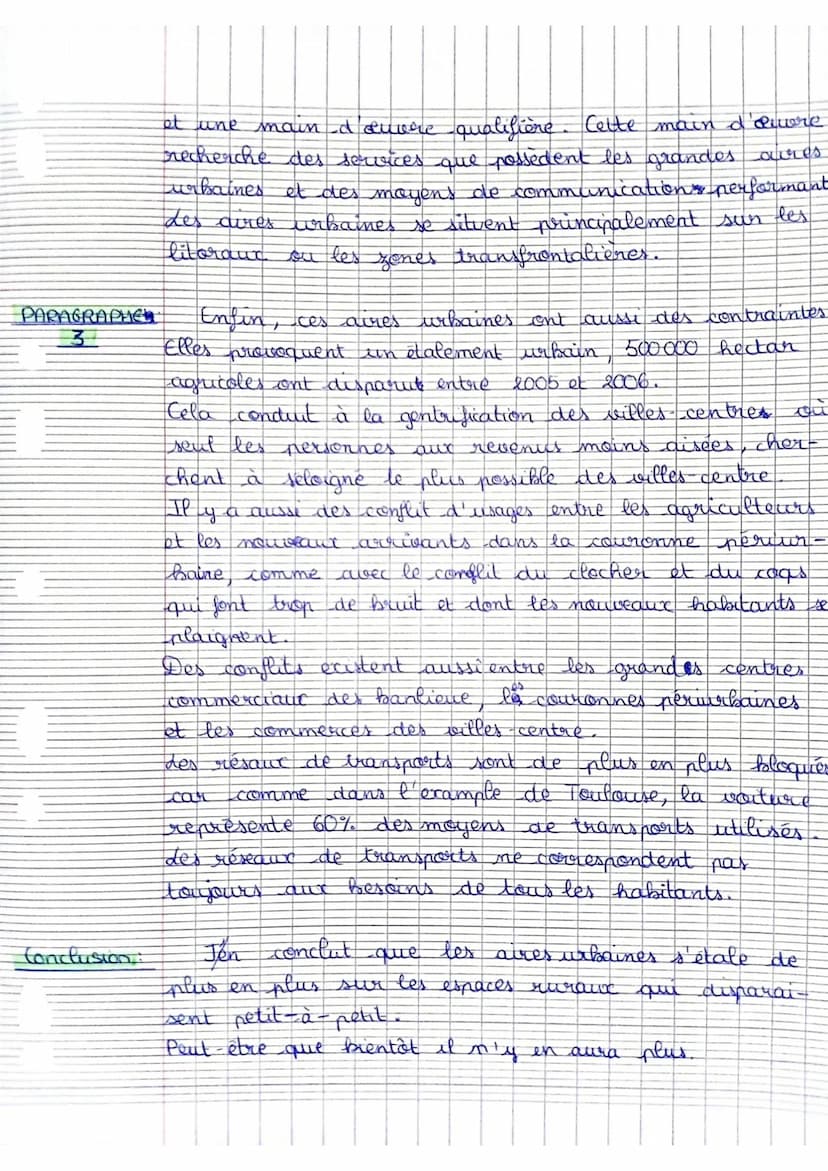 et une main d'œuvre qualifière. Cette main d'œuvre
recherche des services que possèdent les grandes aires
urbaines et des moyens de communications performant
des aires urbaines se situent principalement sur les
litoraux ou les zones transfrontalières.
PARAGRAPHE Enfin, ces aires urbaines ont aussi des contraintes
3
Elles provoquent un étalement urbain, 500 000 hectar
agricoles ont disparut entre 2005 et 2006.
Cela conduit à la gentrification des villes-centres où
seul les personnes aux revenus moins aisées, cher-
chent à s'éloigné le plus possible des villes-centre.
Il y a aussi des conflit d'usages entre les agriculteurs
et les nouveaux arrivants dans la couronne périur-
baine, comme avec le conflit du clocher et du coqs
qui font trop de bruit et dont les nouveaux habitants se
plaignent.
Des conflits existent aussi entre les grands centres
commerciaux des banlieue, les couronnes périurbaines
et les commerces des villes-centre.
des résaux de transports sont de plus en plus bloqués
car comme dans l'example de Toulouse, la voiture
représente 60% des moyens de transports utilisés.
des réseaux de transports ne correspondent pas
toujours aux besoins de tous les habitants.
Conclusion: J'én conclut que les aires urbaines s'étale de
plus en plus sur les espaces ruraux qui disparai-
sent petit-à-petit.
Peut-être que bientôt il n'y en aura plus.